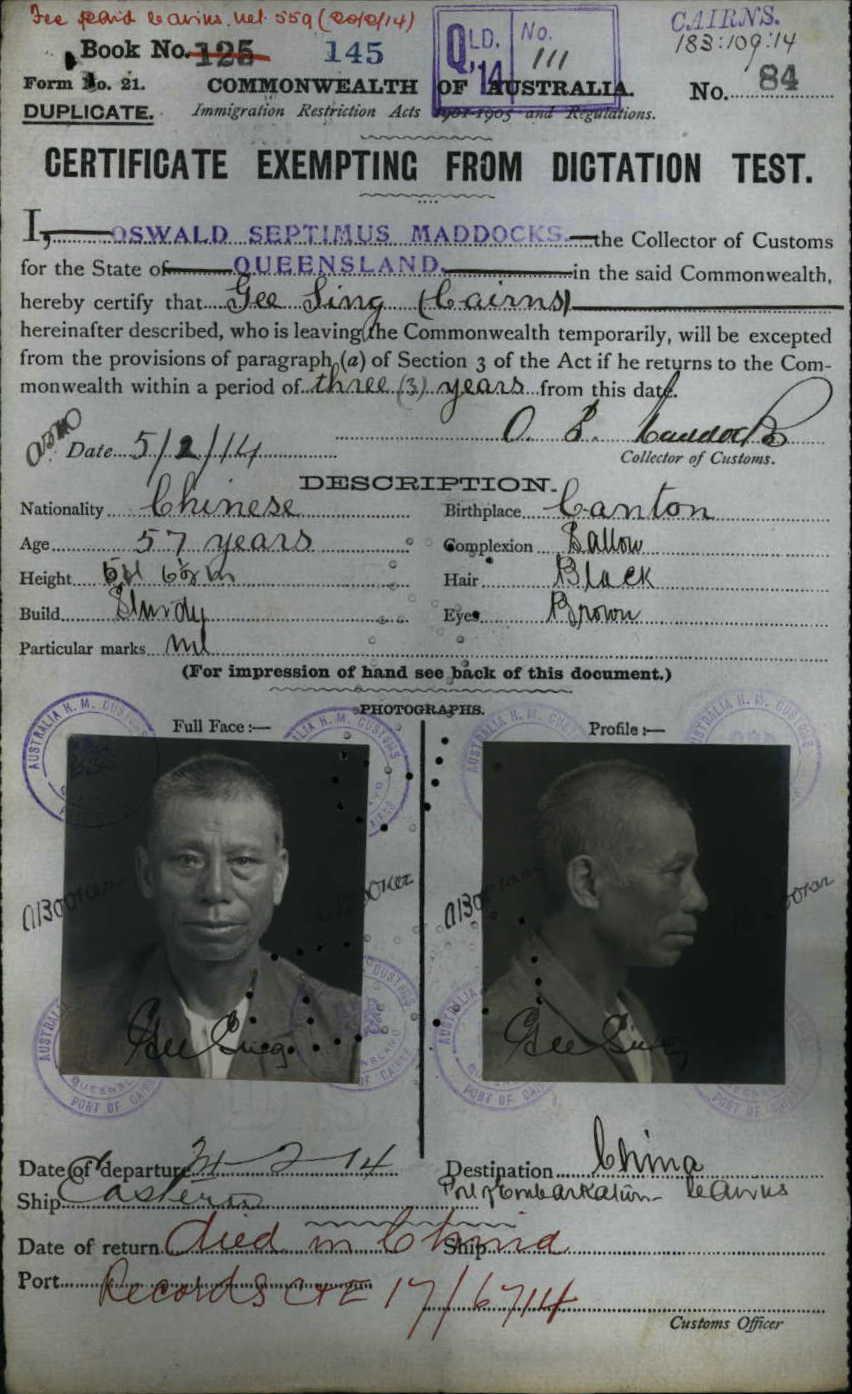 Fee paid Cairns
Book No. 125 145
QLD. '14 No. 111
CAIRNS.
183:109:14
Form No. 21. COMMONWEALTH OF AUSTRALIA. No. 84
DUPLICATE. Immigration Restriction Acts 1901-1905 and Regulations.
CERTIFICATE EXEMPTING FROM DICTATION TEST.
I, OSWALD SEPTIMUS MADDOCKS. the Collector of Customs
for the State of QUEENSLAND. in the said Commonwealth,
hereby certify that Gee Sing (Cairns)
hereinafter described, who is leaving the Commonwealth temporarily, will be excepted
from the provisions of paragraph (a) of Section 3 of the Act if he returns to the Com-
monwealth within a period of three (3) years from this date.
O. S. Maddocks
Date 5/2/14 Collector of Customs.
DESCRIPTION.
Nationality Chinese Birthplace Canton
Age 57 years Complexion Sallow
Height Hair Black
Build Sturdy Eyes Brown
Particular marks Nil
(For impression of hand see back of this document.)
PHOTOGRAPHS.
Full Face:— Profile:—
AUSTRALIA H. M. CUSTOMS
Gee Sing Gee Sing
QUEENSLAND
PORT OF CAIRNS
Date of departure 2-14 Destination China
Ship Eastern Port of Embarkation Cairns
Date of return Died in China Ship
Port Records CTE 17/6714
Customs Officer